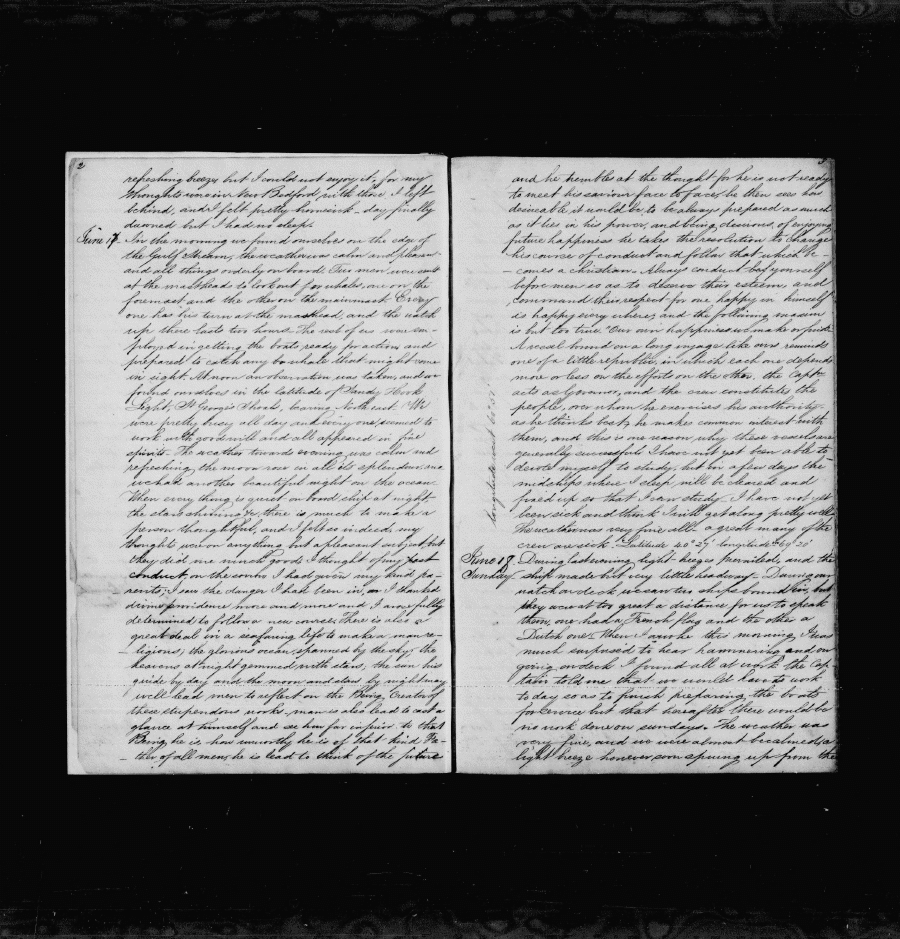 2
refreshing breeze but I could not enjoy it, for my
thoughts were in New Bedford, with those I left
behind, and I felt pretty homesick - day finally
dawned but I had no sleep.
June 17 In the morning we found ourselves on the edge of
the Gulf Stream, the weather was calm and pleasant
and all things orderly on board. Two men were sent
at the mastheads to look out for whales, one on the
foremast and the other on the mainmast. Every
one has his turn at the masthead, and the watch
up there lasts two hours. The rest of us were em-
ployed in getting the boats ready for action and
prepared to catch any whale that might come
in sight. At noon an observation was taken, and we
found ourselves in the latitude of Sandy Hook
Light, St Georges Shoal, bearing North east. We
were pretty busy all day and every one seemed to
work with good will and all appeared in fine
spirits. The weather towards evening was calm and
refreshing, the moon rose in all its splendour and
we had another beautiful night on the ocean.
When every thing is quiet on board ship at night
the stars shining &c, there is much to make a
person thoughtful, and I felt so indeed, my
thoughts were on anything but a pleasant subject, but
they did me much good. I thought of my past
conduct, on the sorrow I had given my kind pa-
rents; I saw the danger I had been in, I thanked
divine providence more and more and I now fully
determined to follow a new course, there is also a
great deal in a seafaring life to make a man re-
- ligious; the glorious ocean spanned by the sky, the
heavens at night gemmed with stars, the sun his
guide by day and the moon and stars by night may
well lead men to reflect on the Being, Creator of
these stupendous works, man is also lead to cast a
glance at himself and see how far inferior to that
Being he is, how unworthy he is of that kind Fa-
- ther of all men, he is lead to think of the future
3
and he trembles at the thought for he is not ready
to meet his saviour face to face, he then sees how
desireable it would be to be always prepared as much
as it lies in his power, and being desirous of enjoying
future happiness he takes the resolution to change
his course of conduct and follow that which be-
- comes a christian. Always conduct yourself
before men so as to deserve their esteem and
command their respect for one happy in himself
is happy every where; and the following maxim
is but too true "Our own happiness we make or find"
A vessel bound on a long voyage like ours reminds
one of a little republic, in which each one depends
more or less on the efforts on the other. the Capt.
acts as Governor, and the crew constitutes the
people, over whom he exercises his authority
as he thinks best, he makes common interest with
them, and this is one reason why these vessels are
generally successful. I have not yet been able to
devote myself to study, but in a few days the
midships where I sleep will be cleared and
fixed up so that I can study. I have not yet
been sick and think I will get along pretty well.
The weather was very fine all. a great many of the
crew are sick. Latitude 40° 29' longitude 69° 25'
June 18 During last evening light breezes prevailed, and the
Sunday ship made but very little headway. During our
watch on deck we saw two ships bound in, but
they were at too great a distance for us to speak
them, one had a French flag and the other a
Dutch one. When I awoke this morning, I was
much surprised to hear hammering and on
going on deck I found all at work the Cap-
tain told me that we would have to work
to day so as to finish preparing the boats
for service but that hereafter there would be
no work done on sundays. The weather was
very fine, and we were almost becalmed, a
light breeze however soon sprung up from the